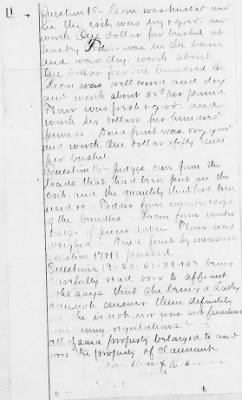 11
Question 15- Corn was husked and
in the crib was dry & good and
worth One dollar per bushel at
least. Fodder was in the barn
and was dry, worth about
One dollar per one hundred lbs
Bacon was well cured and dry
and worth about 25¢ per pound
Flour was fresh & good and
worth six dollars per hundred
pounds - Dried fruit was very good
and worth One dollar & fifty cents
per bushel
Question 16- Judges corn from the
loads that had been put in the
crib and the quantity that had been
used - Fodder from
the bundles - Bacon from
of pieces taken Flour was
weighed - Dried fruit by measure
Question 17 & 18 passed
Questions 19-20-21-22 being
carefully read over to affiant
she says that she being a Lady
cannot answer them definitely
She is not nor was not familiar
with army regulations
All of said property belonged to and
was the property of claimant